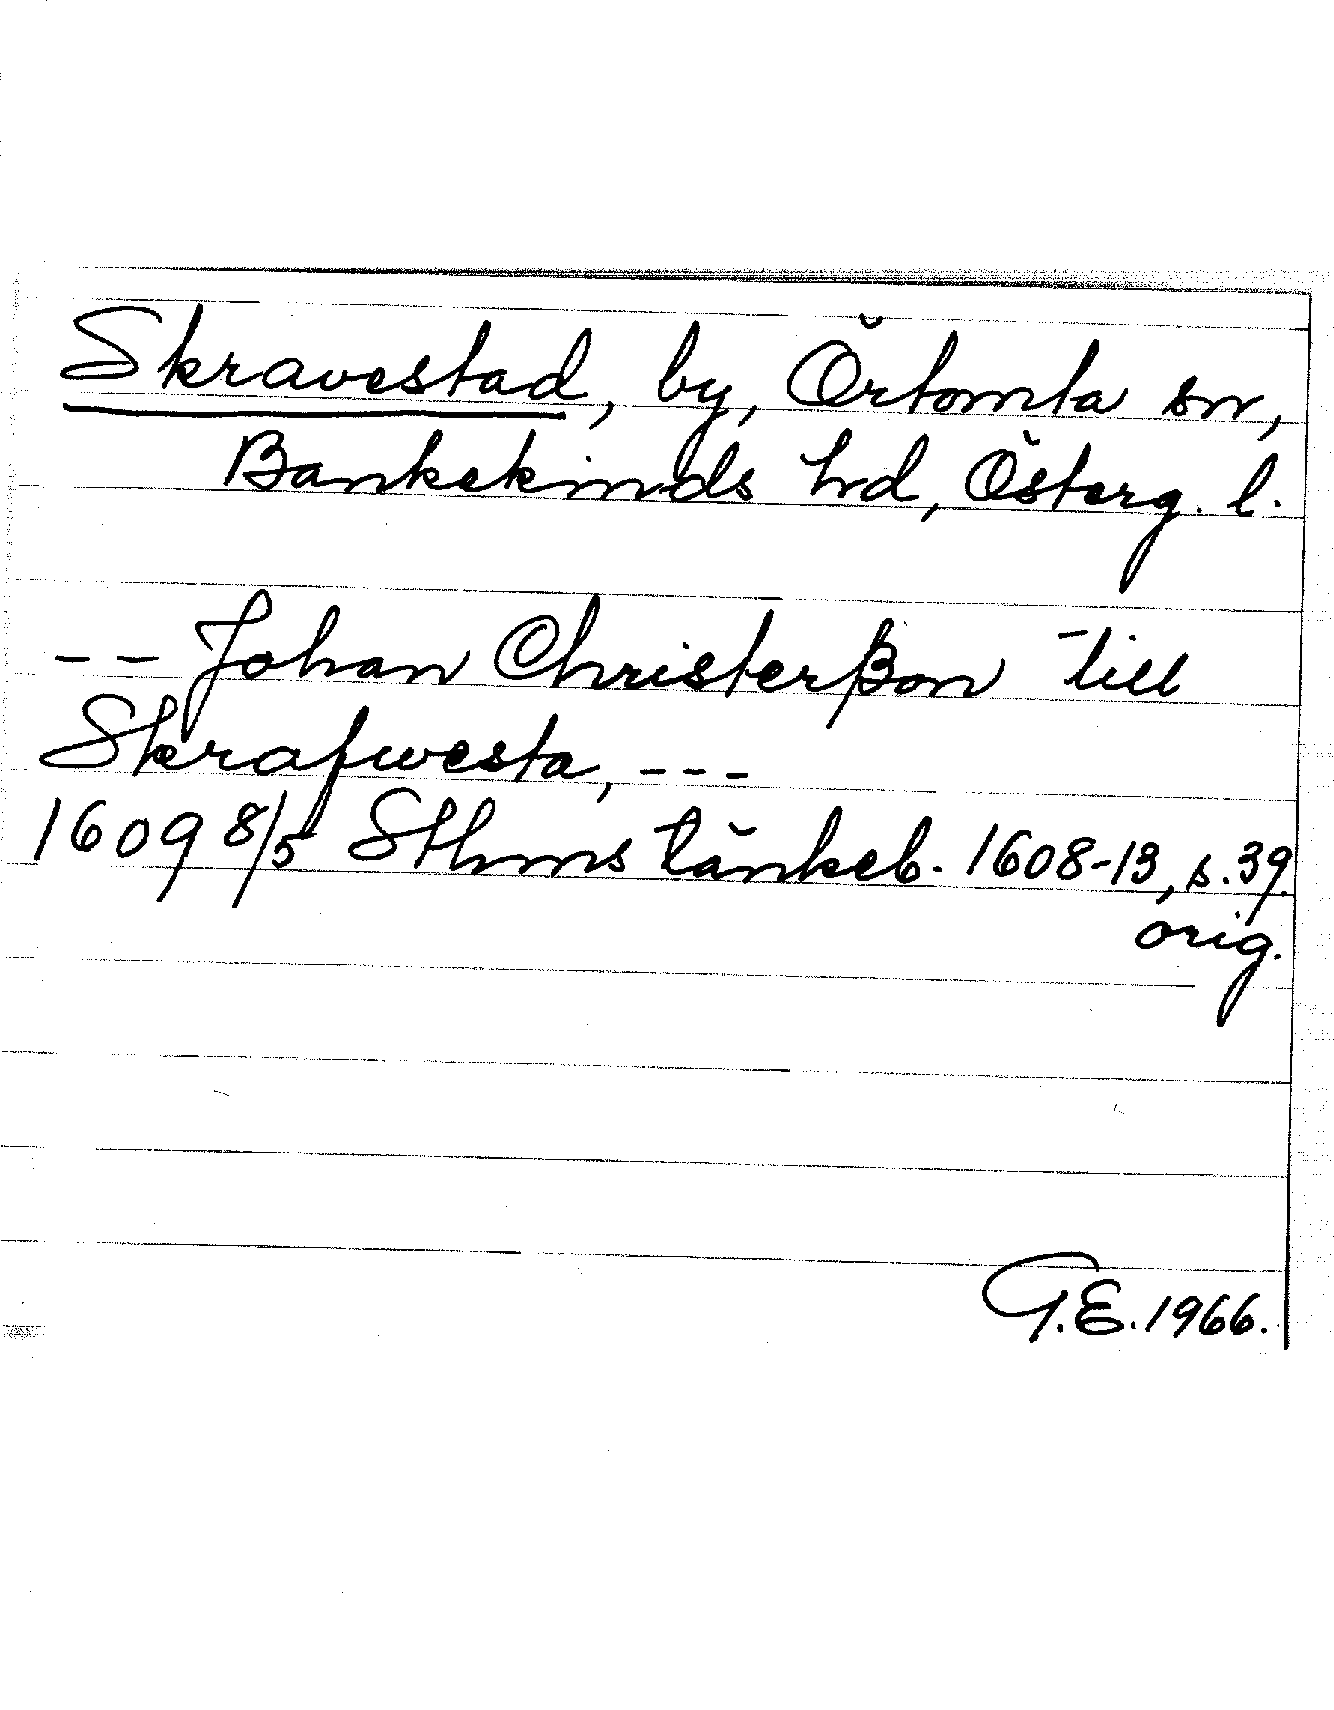 Skravestad, by, Örtomta sn,
Bankekinds hrd, Österg. l.
-- Johan Christerßon till
Skrafwesta, ---
1609 8/5 Sthms tänkeb. 1608-13, s. 39.
orig.
G.E. 1966.